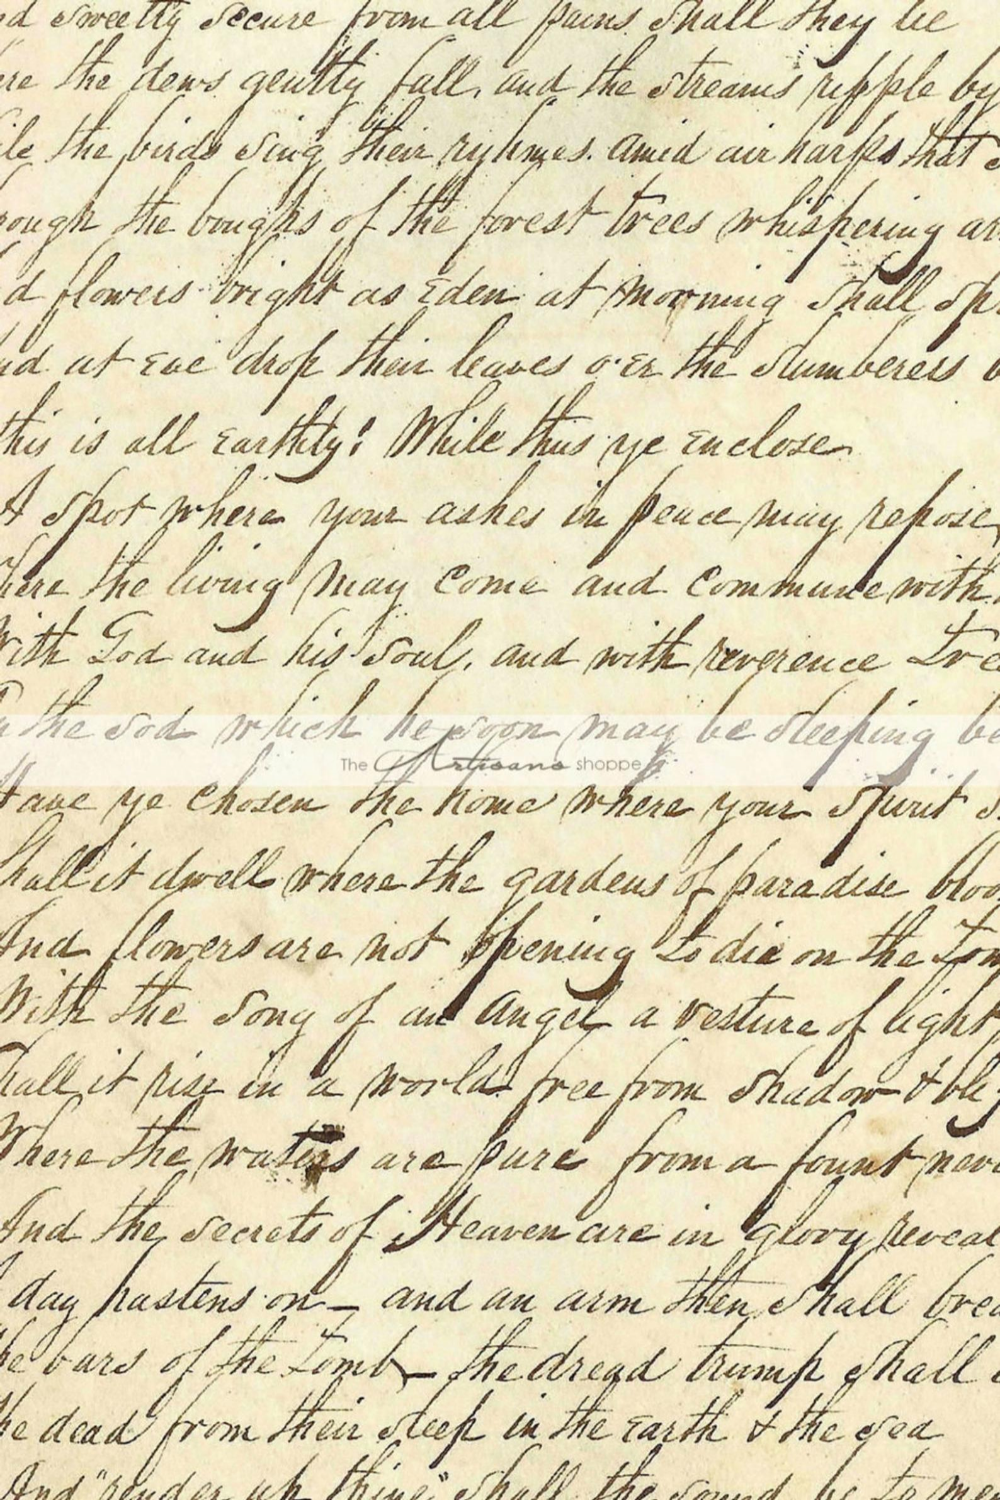 d sweetly secure from all pains shall they lie
re the dews gently fall, and the streams ripple by
ile the birds sing their ryhmes. amid air harps that s
rough the boughs of the forest trees whispering ar
d flowers bright as Eden at morning shall sp
nd at eve drop their leaves o'er the slumberers b
this is all Earthly: While thus ye enclose
A spot where your ashes in peace may repose,
here the living may come and commune with
With God and his soul, and with reverence tre
the sod which he soon may be sleeping be
The Artisans shoppe
Have ye chosen the home where your spirit s
Shall it dwell where the gardens of paradise bloo
And flowers are not opening to die on the tom
With the song of an angel a vesture of light,
hall it rise in a world free from shadow & bli
Where the waters are pure from a fount neve
And the secrets of Heaven are in glory reveal
day hastens on – and an arm then shall brea
he bars of the tomb – the dread trump shall
he dead from their sleep in the Earth & the sea
And "render up thine" shall the sound be to me